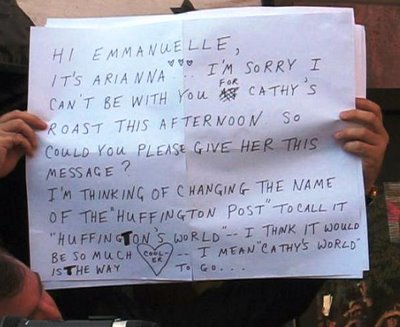 HI EMMANUELLE,
IT'S ARIANNA ♥♥♥... I'M SORRY I
CAN'T BE WITH YOU FOR CATHY'S
ROAST THIS AFTERNOON. SO
COULD YOU PLEASE GIVE HER THIS
MESSAGE?
I'M THINKING OF CHANGING THE NAME
OF THE "HUFFINGTON POST" TO CALL IT
"HUFFINGTON'S WORLD" -- I THINK IT WOULD
BE SO MUCH COOLER -- I MEAN "CATHY'S WORLD"
IS THE WAY TO GO...